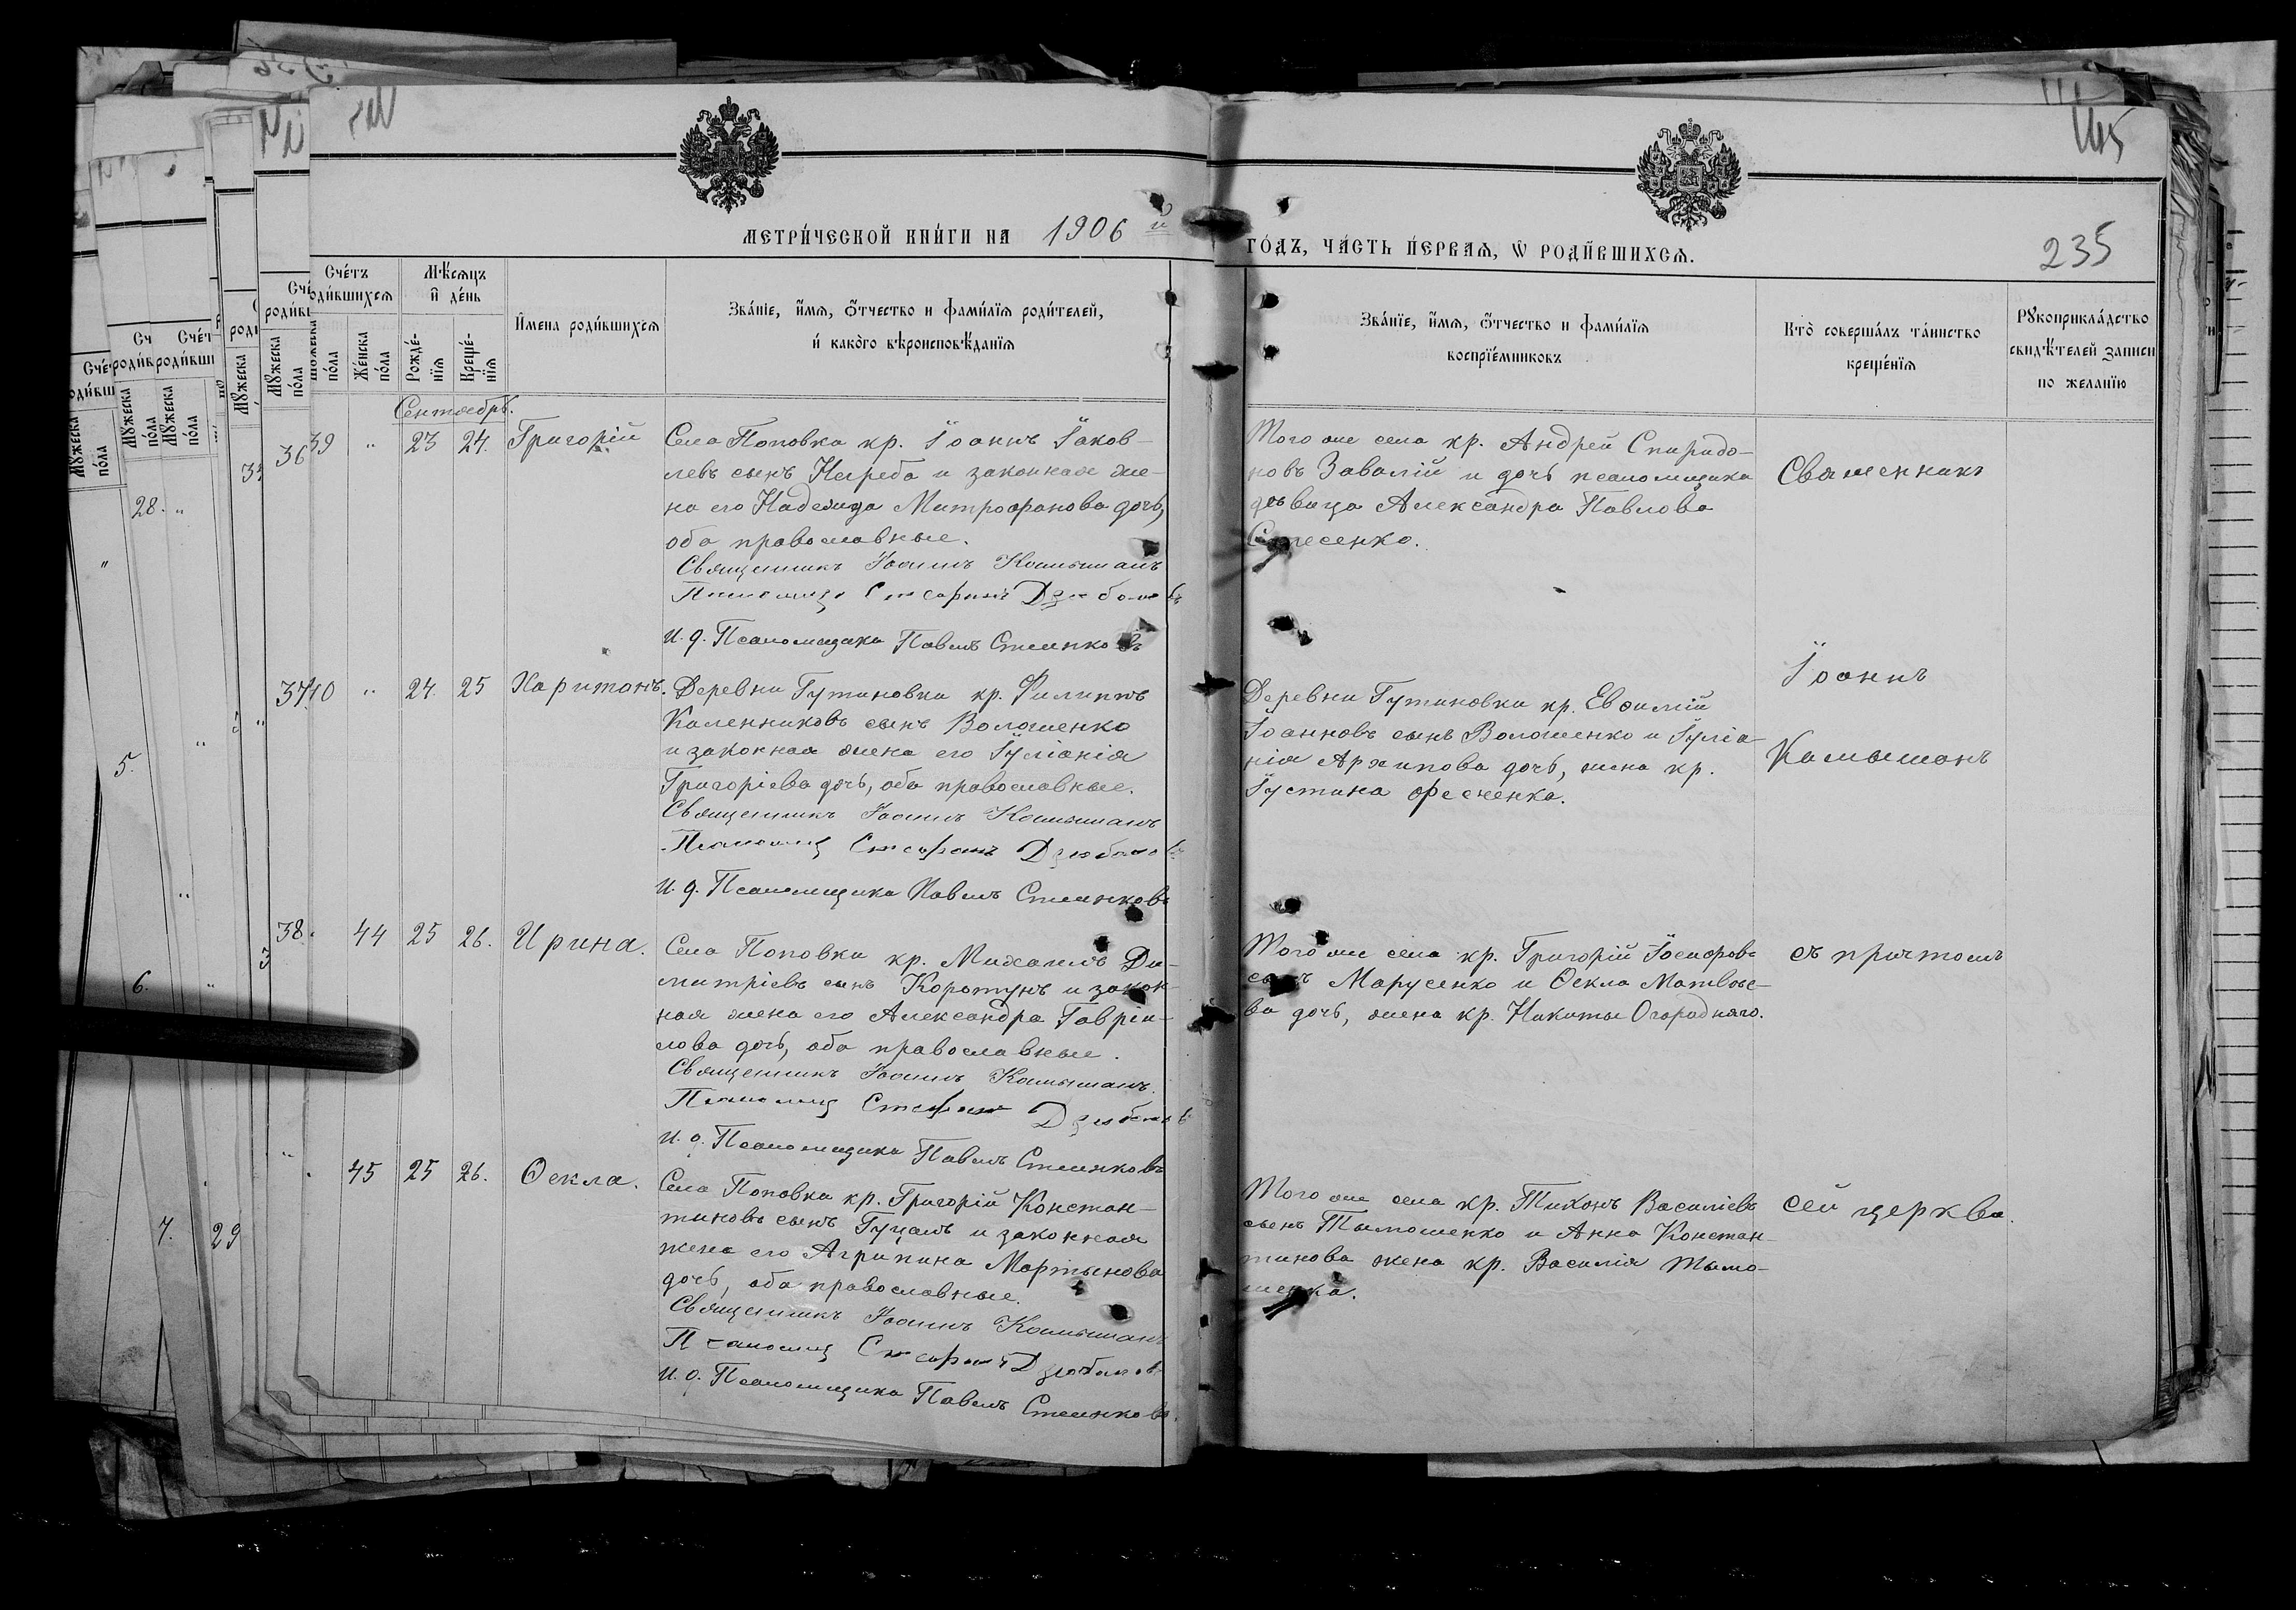 МЕТРИЧЕСКОЙ КНИГИ НА 1906 й
ГОДЪ, ЧАСТЬ ПЕРВАЯ, Ѡ РОДИВШИХСЯ.
145
235
Счетъ родившихся
Мужеска пола
Женска пола
Мѣсяцъ и день
Рожденія
Крещенія
Имена родившихся
Званіе, имя, отчество и фамилія родителей,
и какого вѣроисповѣданія
Званіе, имя, отчество и фамилія
воспріемниковъ
Кто совершалъ таинство
крещенія
Рукоприкладство
свидѣтелей записи
по желанію
Сентябрь.
39 " 23 24. Григорій
Села Поповка кр. Іоаннъ Іаков-
левъ сынъ Негреба и законная же-
на его Надежда Митрофанова дочь,
оба православные.
Священникъ Іоаннъ Камышанъ
Псаломщ Стефанъ Дзюбановъ
И. д. Псаломщика Павелъ Стесенковъ
Того же села кр. Андрей Спиридо-
новъ Завалій и дочь псаломщика
дѣвица Александра Павлова
Стесенко.
40 " 24. 25 Харитонъ.
Деревни Гутиновки кр. Филиппъ
Каленниковъ сынъ Волошенко
и законная жена его Іуліанія
Григоріева дочь, оба православные.
Священникъ Іоаннъ Камышанъ
Псаломщ Стефанъ Дзюбановъ
И. д. Псаломщика Павелъ Стесенковъ
Деревни Гутиновки кр. Евѳимій
Іоанновъ сынъ Волошенко и Іуліа-
нія Архипова дочь, жена кр.
Іустина Фесенка.
44 25 26. Ирина.
Села Поповки кр. Михаилъ Ди-
митріевъ сынъ Коротунъ и закон-
ная жена его Александра Гавріи-
лова дочь, оба православные.
Священникъ Іоаннъ Камышанъ.
Псаломщ Стефанъ Дзюбановъ
И. д. Псаломщика Павелъ Стесенковъ
Того же села кр. Григорій Іосифовъ
сынъ Марусенко и Ѳекла Матвѣе-
ва дочь, жена кр. Никиты Огородняго.
45 25 26. Ѳекла.
Села Поповки кр. Григорій Констан-
тиновъ сынъ Гуцалъ и законная
жена его Агрипина Мартынова
дочь, оба православные.
Священникъ Іоаннъ Камышанъ
Псаломщ Стефанъ Дзюбановъ
И. д. Псаломщика Павелъ Стесенковъ.
Того же села кр. Тихонъ Василіевъ
сынъ Тымошенко и Анна Констан-
тинова жена кр. Василія Тымо-
шенка.
Священникъ
Іоаннъ
Камышанъ
съ причтомъ
сей церкви.
36
37
38.
28.
5.
6.
7.
29